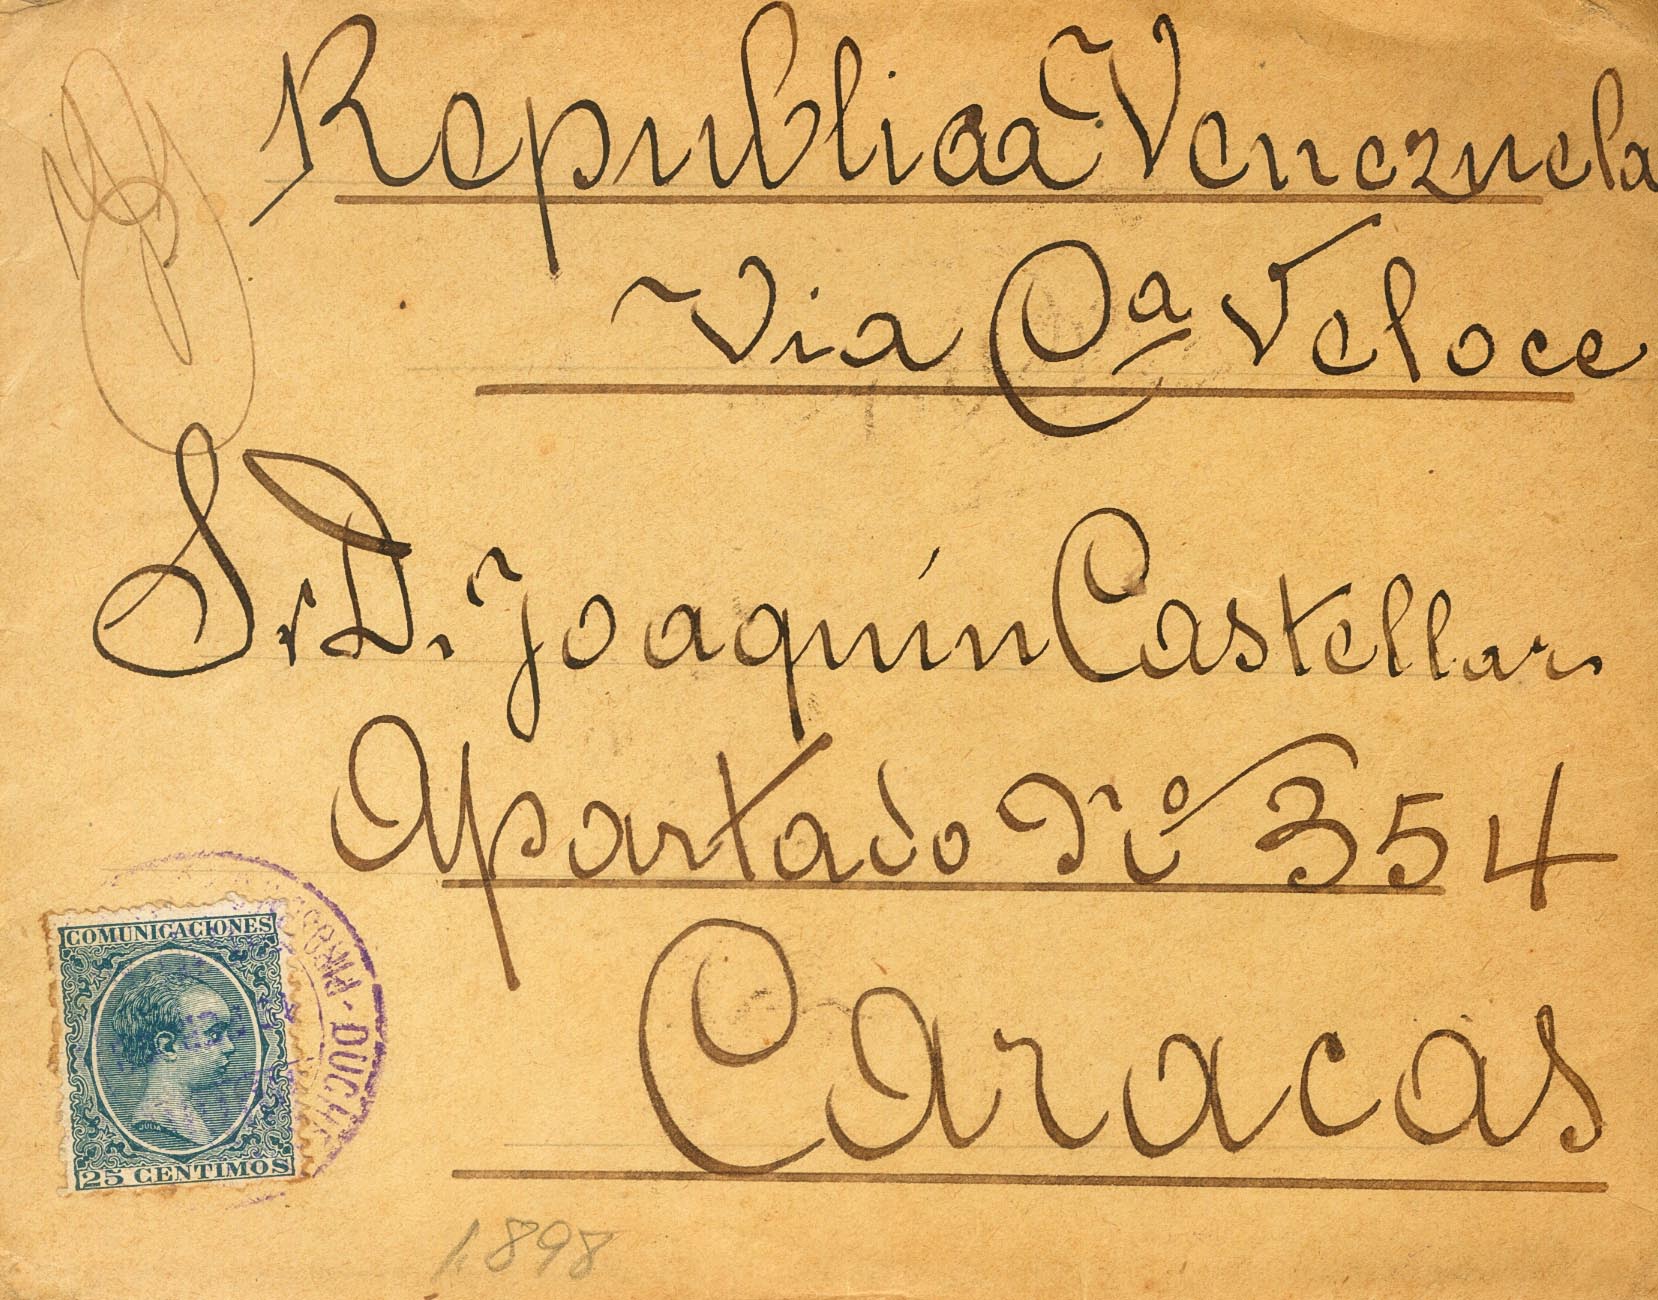 Republica Venezuela
Via Cª Veloce
Sr D. Joaquín Castellar
Apartado Nº 354
Caracas
COMUNICACIONES
JULIA
25 CENTIMOS
1898